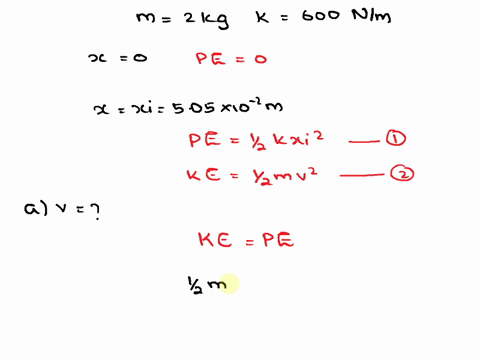 m = 2kg k = 600 N/m
x = 0 PE = 0
x = xi = 5.05 × 10⁻² m
PE = 1/2 k xi² —— ①
KE = 1/2 m v² —— ②
a) v = ?
KE = PE
1/2 m